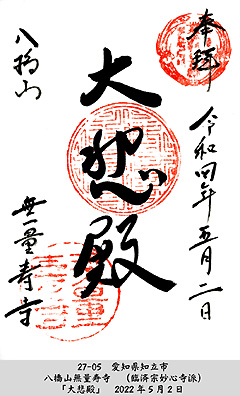 奉拝
令和四年五月二日
大悲殿
八橋山
無量寿寺
27-05 愛知県知立市
八橋山無量寿寺 (臨済宗妙心寺派)
「大悲殿」 2022年5月2日